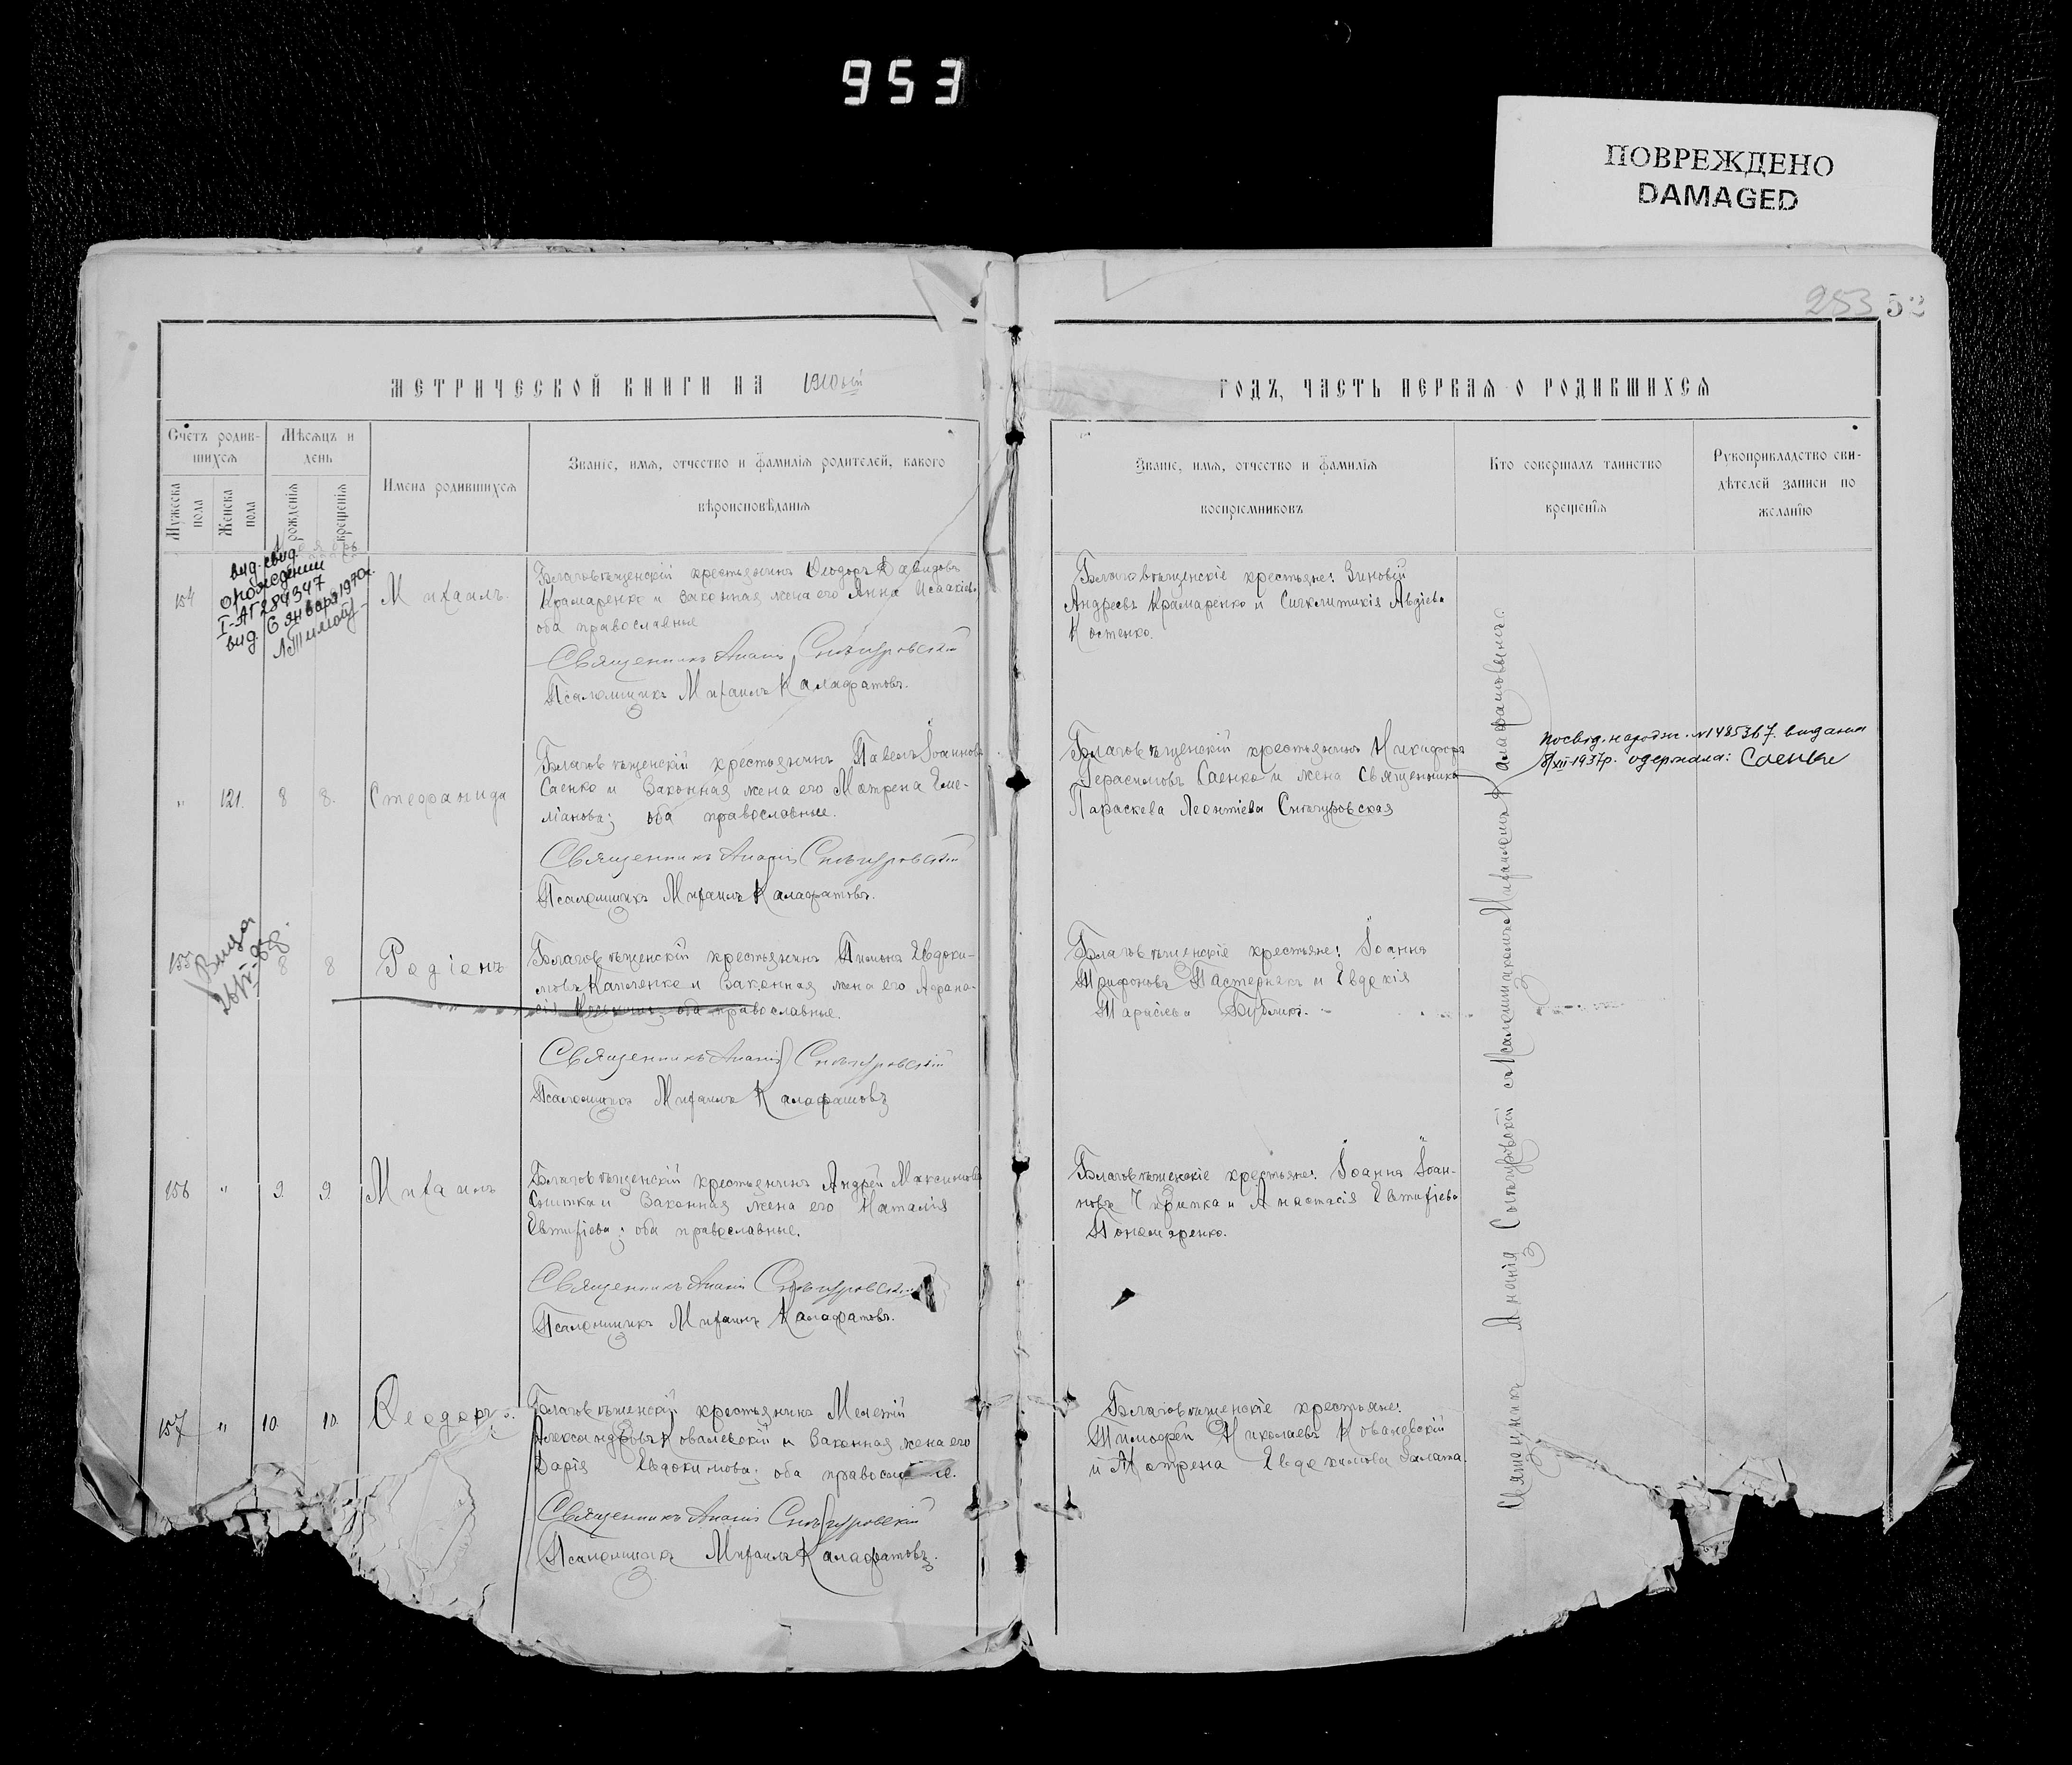 953
ПОВРЕЖДЕНО
DAMAGED
253 52
МЕТРИЧЕСКОЙ КНИГИ НА 1910ый
ГОДЪ, ЧАСТЬ ПЕРВАЯ О РОДИВШИХСЯ
Счетъ родив-
шихся
Мужеска
пола
Женска
пола
Мѣсяцъ и
день
рожденія
крещенія
Имена родившихся
Званіе, имя, отчество и фамилія родителей, какого
вѣроисповѣданія
Званіе, имя, отчество и фамилія
воспріемниковъ
Кто совершалъ таинство
крещенія
Рукоприкладство сви-
дѣтелей записи по
желанію
154
вид. свид.
о рождении
I-АГ 284347
вид. 6 января 1970г.
Михаилъ.
Благовѣщенскій крестьянинъ Ѳеодоръ Давидовъ
Крамаренко и законная жена его Анна Исаакіева
оба православные
Священникъ Ананія Снѣгуровскій
Псаломщикъ Михаилъ Калафатовъ.
Благовѣщенскіе крестьяне: Зиновій
Андреевъ Крамаренко и Сигклитикія Авдіева
Костенко.
" 121. 8 8. Стефанида
Благовѣщенскій крестьянинъ Павелъ Іоанновъ
Саенко и законная жена его Матрена Еме-
ліанова; оба православные.
Священникъ Ананія Снѣгуровскій
Псаломщикъ Михаилъ Калафатовъ.
Благовѣщенскій крестьянинъ Никифоръ
Герасимовъ Саенко и жена священника
Параскева Леонтіева Снѣгуровская
Посвід. народж. №1485367. видання
8/XII-1937р. одержала: Саенко
155 8 8 Родіонъ
Благовѣщенскій крестьянинъ Пимонъ Евдоки-
мовъ и законная жена его Афана-
сія оба православные.
Священникъ Ананія Снѣгуровскій
Псаломщикъ Михаилъ Калафатовъ
Благовѣщенскіе крестьяне: Іоаннъ
Трифоновъ Пастернакъ и Евдокія
Тарасіева Бубликъ.
156 " 9. 9. Михаилъ
Благовѣщенскій крестьянинъ Андрей Максимовъ
Снитка и законная жена его Наталія
Евтихіева; оба православные.
Священникъ Ананія Снѣгуровскій
Псаломщикъ Михаилъ Калафатовъ.
Благовѣщенскіе крестьяне: Іоаннъ Іоан-
новъ Чирипка и Анастасія Евтихіева
Пономаренко.
157 " 10. 10. Ѳеодоръ.
Благовѣщенскій крестьянинъ Мелетій
Александровъ Ковалевскій и законная жена его
Дарія Евдокимова; оба православные.
Священникъ Ананія Снѣгуровскій
Псаломщикъ Михаилъ Калафатовъ.
Благовѣщенскіе крестьяне:
Тимофей Николаевъ Ковалевскій
и Матрена Евдокимова Галата.
Священникъ Ананія Снѣгуровскій съ Псаломщикомъ Михаиломъ Калафатовымъ.